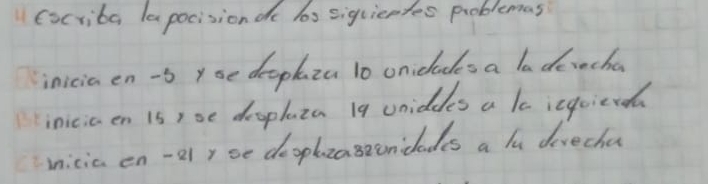 4 Escriba la pocision de los siguientes problemas:
A inicia en -5 y se desplaza 10 unidades a la derecha
B inicia en 15 y se desplaza 19 unidades a la izquierda
C inicia en -21 y se desplaza 32 unidades a la derecha